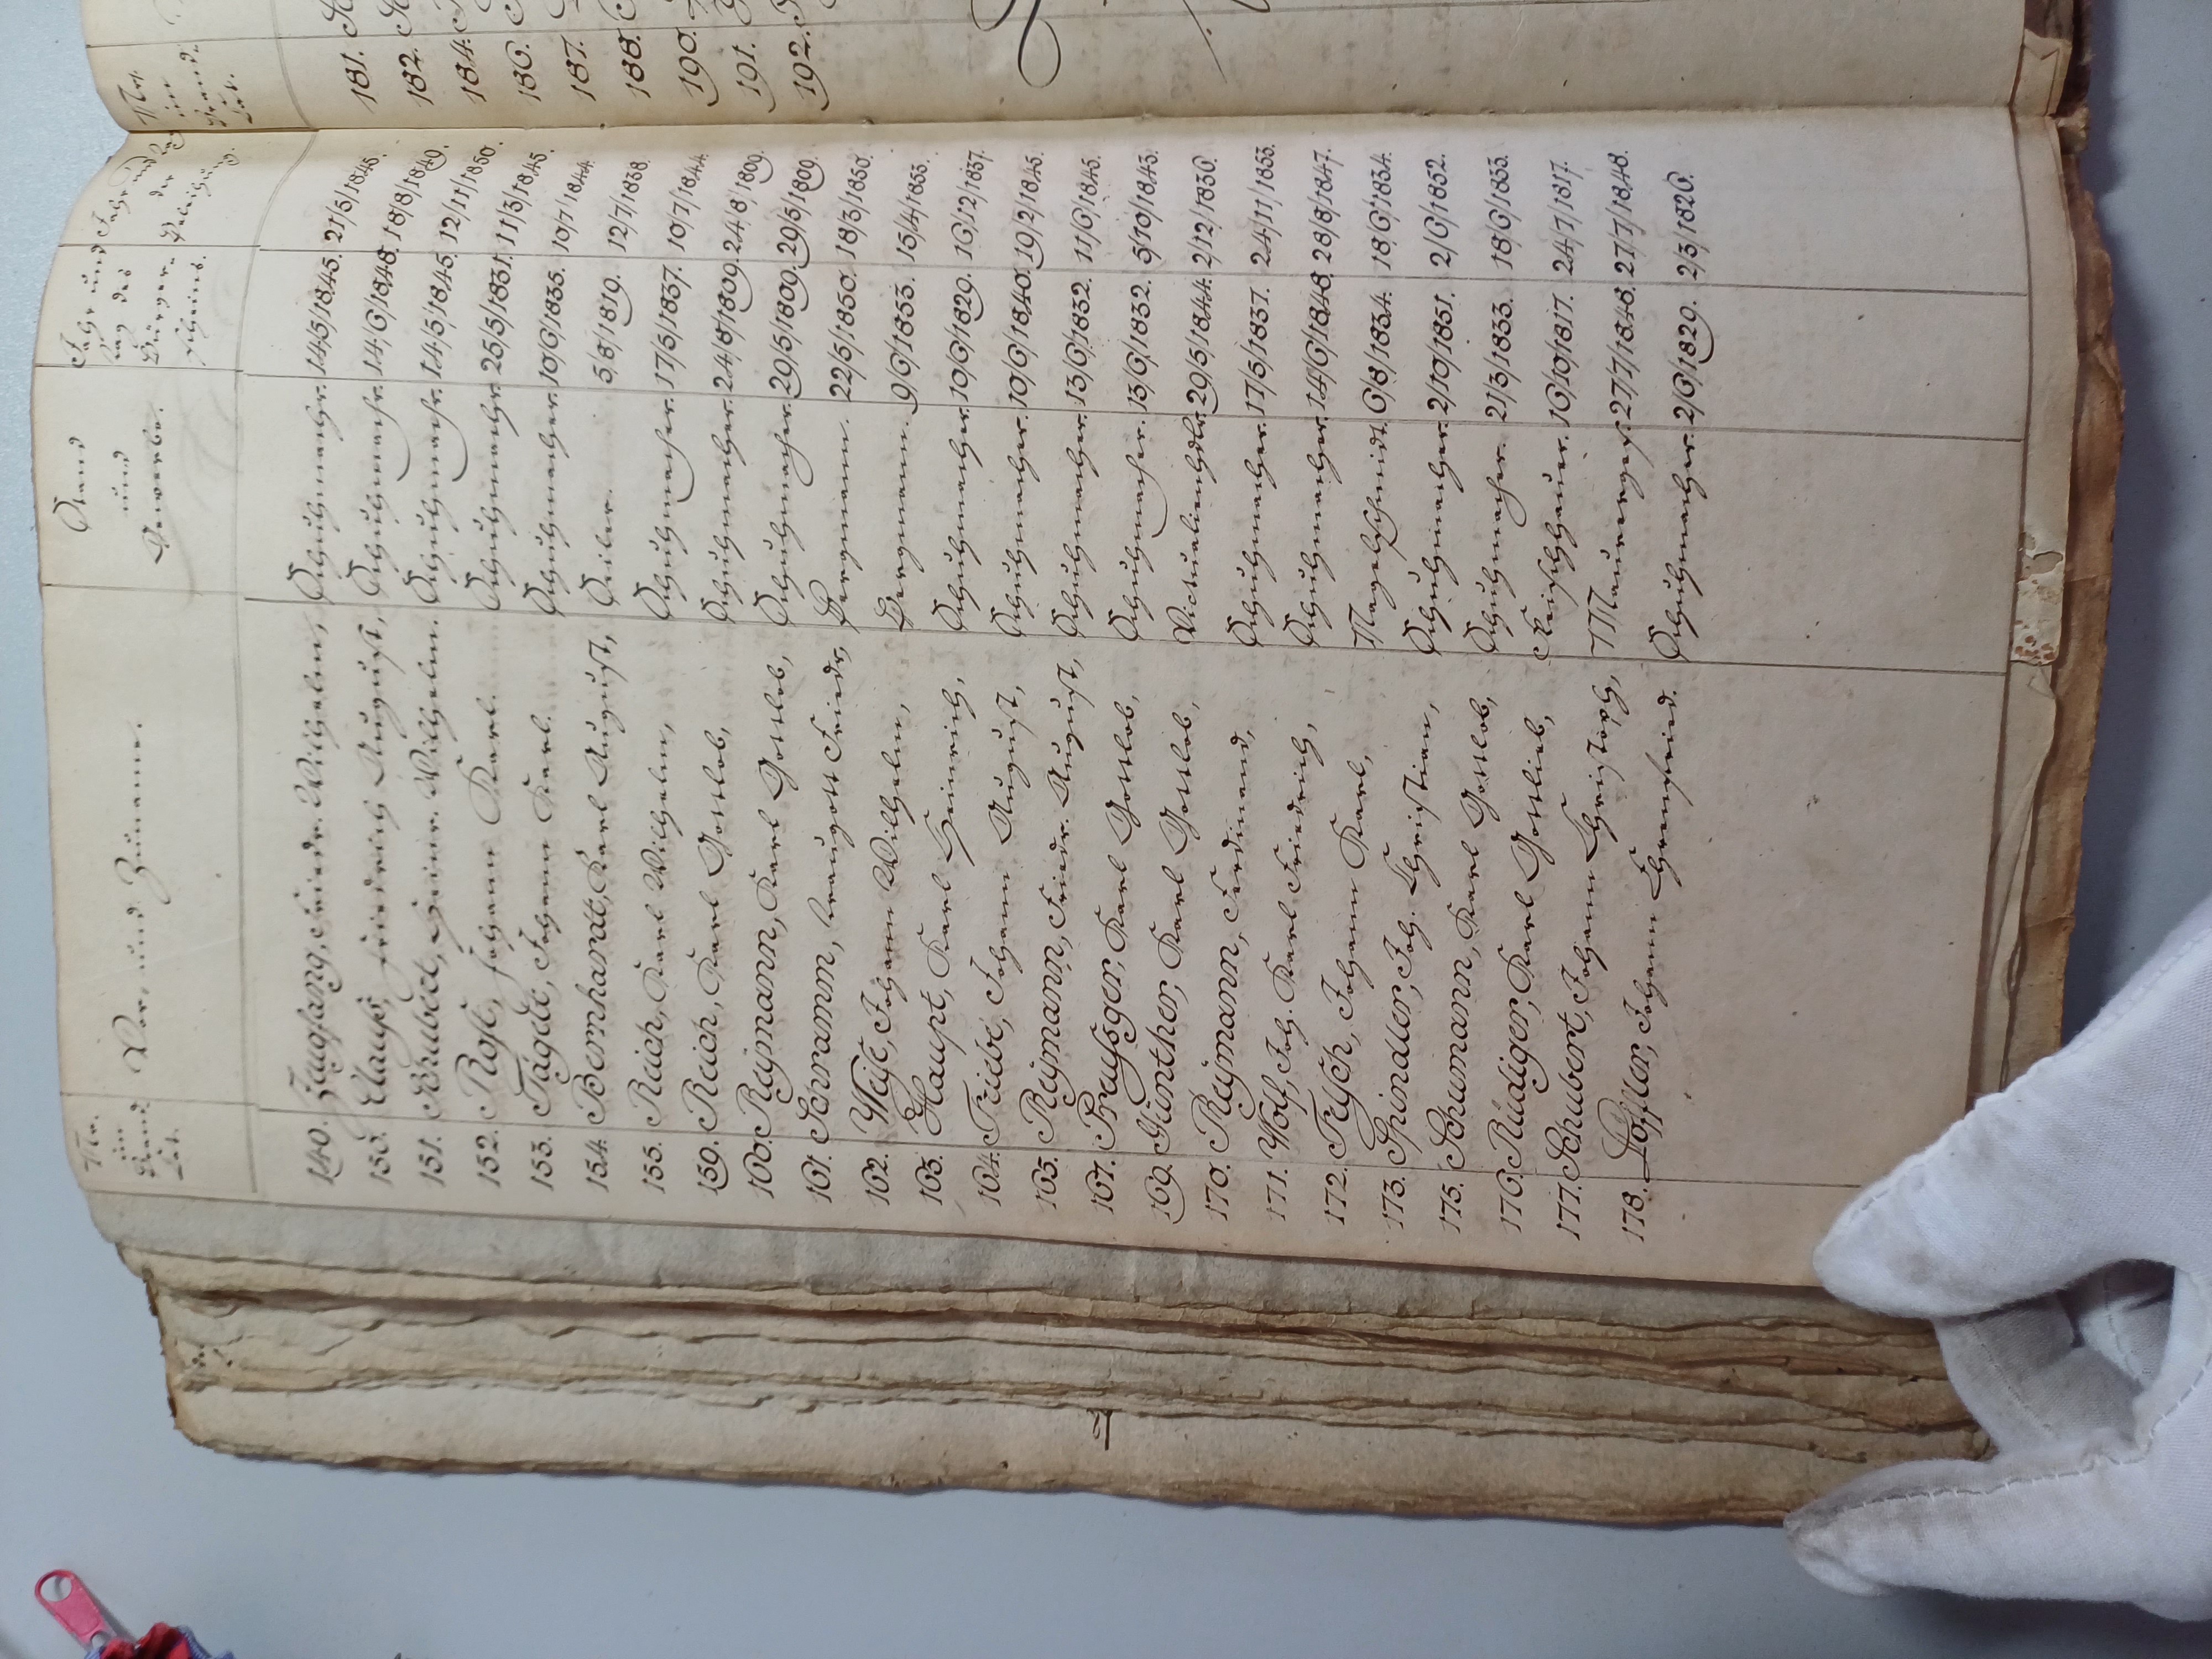 No. im Brand Cat.
Vor- und Zuname.
Stand und Gewerbe.
Jahr und Tag des Bürger- scheins.
Jahr und Tag der Beleihung.
149. Zeugfang, Friedr. Wilhelm, Schuhmacher. 14/5/1845. 21/5/1845.
150. Clauß, Friedrich August, Schuhmachr. 14/6/1848. 18/8/1849.
151. Schubert, Heinr. Wilhelm. Schuhmachr. 14/5/1845. 12/11/1850.
152. Rost, Johann Karl. Schuhmacher 25/5/1831. 11/3/1845.
153. Tägdt, Johann Karl. Schuhmacher. 10/6/1835. 10/7/1844.
154. Bernhardt, Karl August, Seiler. 5/8/1819. 12/7/1838.
155. Reich, Karl Wilhelm, Schuhmacher. 17/5/1837. 10/7/1844.
159. Reich, Karl Gottlob, Schuhmacher. 24/8/1809. 24/8/1809.
160. Reymann, Karl Gottlob, Schuhmacher. 29/5/1809. 29/5/1809.
161. Schramm, Traugott Friedr, Bergmann. 22/5/1850. 18/3/1850.
162. Weise, Johann Wilhelm, Bergmann. 9/6/1853. 15/4/1853.
163. Haupt, Karl Heinrich, Schuhmacher 10/6/1829. 16/12/1837.
164. Johann August, Schuhmacher. 10/6/1840. 19/2/1845.
165. Reymann, Friedr. August, Schuhmacher. 13/6/1832. 11/6/1845.
167. Praußger, Karl Gottlob, Schuhmacher. 13/6/1832. 5/10/1843.
169. Günther, Karl Gottlob, Victualienhdlr. 29/5/1844. 2/12/1836.
170. Reymann, Ferdinand, Schuhmacher. 17/5/1837. 24/11/1853.
171. Wolf, Joh. Karl Friedrich, Schuhmacher. 14/6/1848. 28/8/1847.
172. Johann Karl, Nagelschmidt. 6/8/1834. 18/6/1834.
173. Spindler, Joh. Christian, Schuhmacher. 2/10/1851. 2/6/1852.
175. Schumann, Karl Gottlob, Schuhmacher. 21/3/1833. 18/6/1833.
176. Rüdiger, Karl Gottlieb, Fleischhauer. 16/10/1817. 24/7/1817.
177. Schubert, Johann Christoph, Maurerges. 27/7/1848. 27/7/1848.
178. Löffler, Johann Ehrenfried. Schuhmacher. 2/6/1829. 2/3/1826.
No. im Brand Cat.
181.
182.
184.
186.
187.
188.
190.
191.
192.